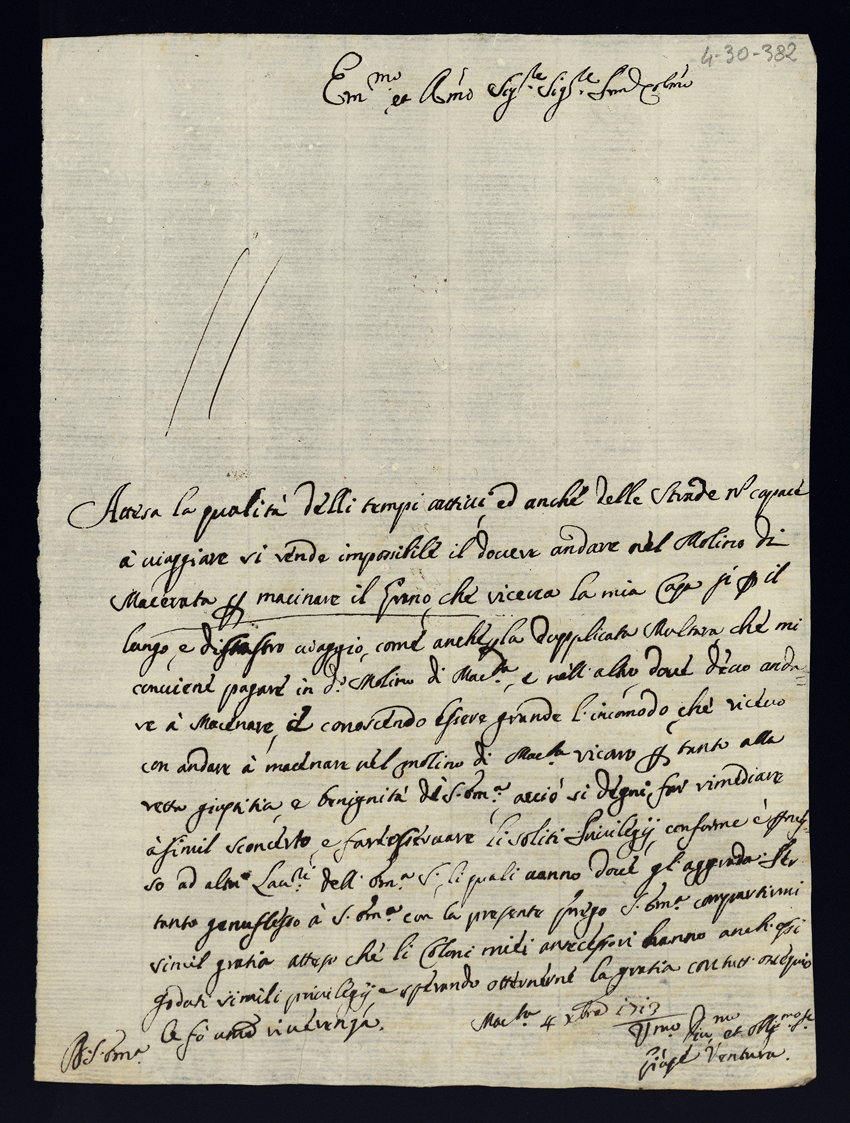 4-30-382
Em.mo et Rmo Sig.re Sig.re
Attesa la qualità delli tempi cattivi ed anche delle Strade n. capace
à viaggiare si rende impossibile il dovere andare nel Molino di
Macerata macinare il Grano, che riceva la mia Casa si il
lungo, e disastro viaggio, come anche la dupplicata Multura, che mi
conviene pagare in d.o Molino di Mac.ta, e nell'altro dove devo anda=
re à Macenare, conoscendo essere grande l'incomodo che ricevo
con andare à macenare nel molino di Mac.ta ricorro tanto alla
retta giustitia, e benignità di S. Em.a acciò si degni far rimediare
à simil sconcerto, e far osservare li soliti Privilegij conforme è
so ad altri dell'Em.a S. li quali vanno dove gl'aggrada. Per
tanto genuflesso à S. Em.a con la presente prego S. Em.a compartirmi
simil gratia atteso che li Coloni miei antecessori hanno anch'essi
goduti simili privilegij e sperando ottenerne la gratia con tutt'ossequio
le fò umil riverenza. Mac.ta 4 Xbre 1713
D. S. Em.a
Ventura.